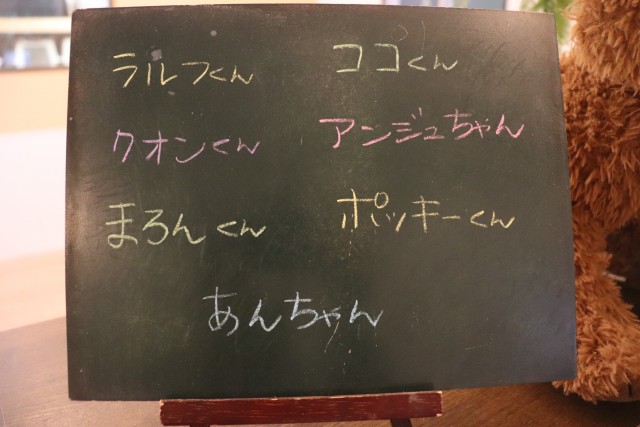 ラルフくん ココくん
クオンくん アンジュちゃん
まろんくん ポッキーくん
あんちゃん